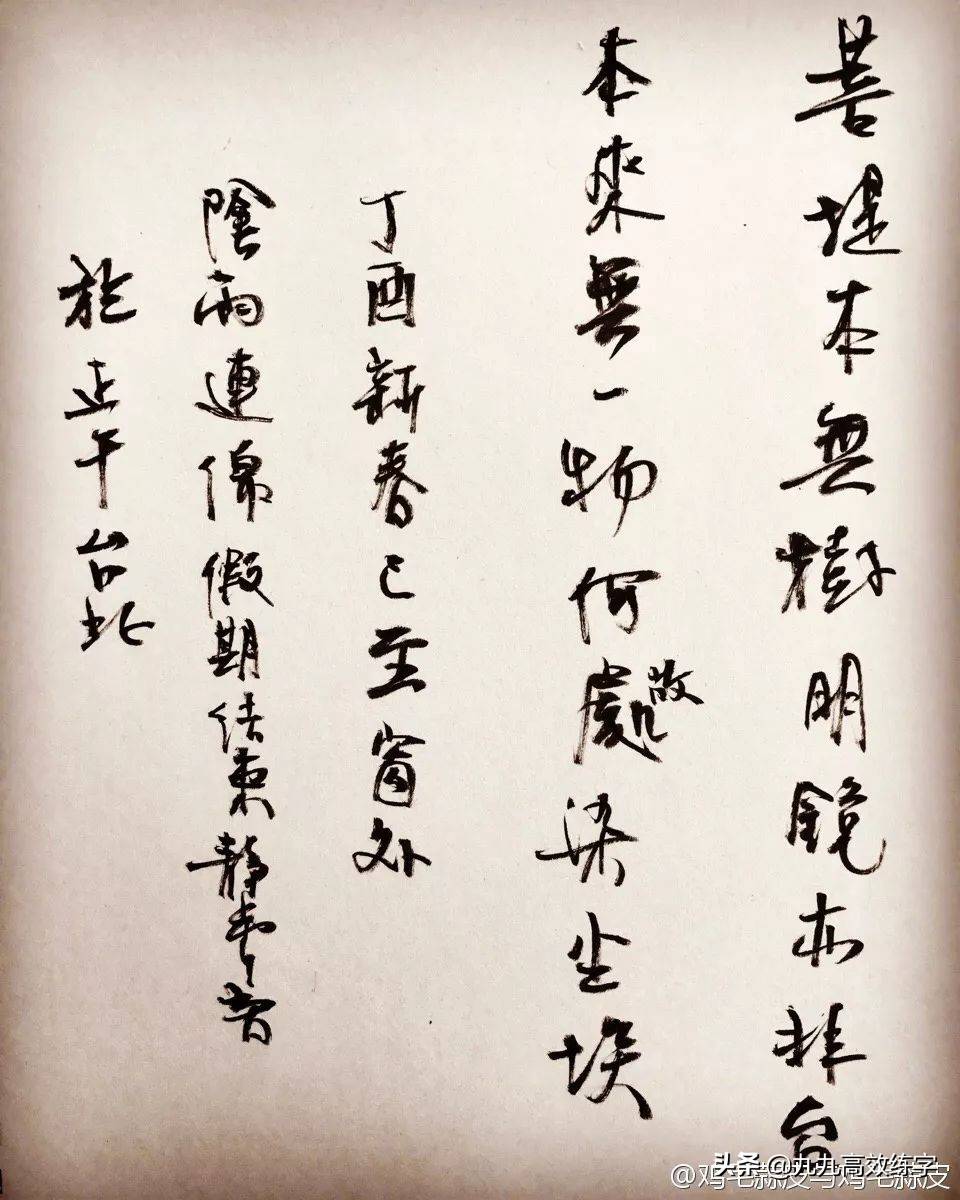 菩提本無樹明鏡亦非台
本來無一物何處故染尘埃
丁酉新春已至窗外
陰雨連綿假期結束靜
於正午台北
头条 @九九高效练字
@鸡毛蒜皮与鸡毛蒜皮